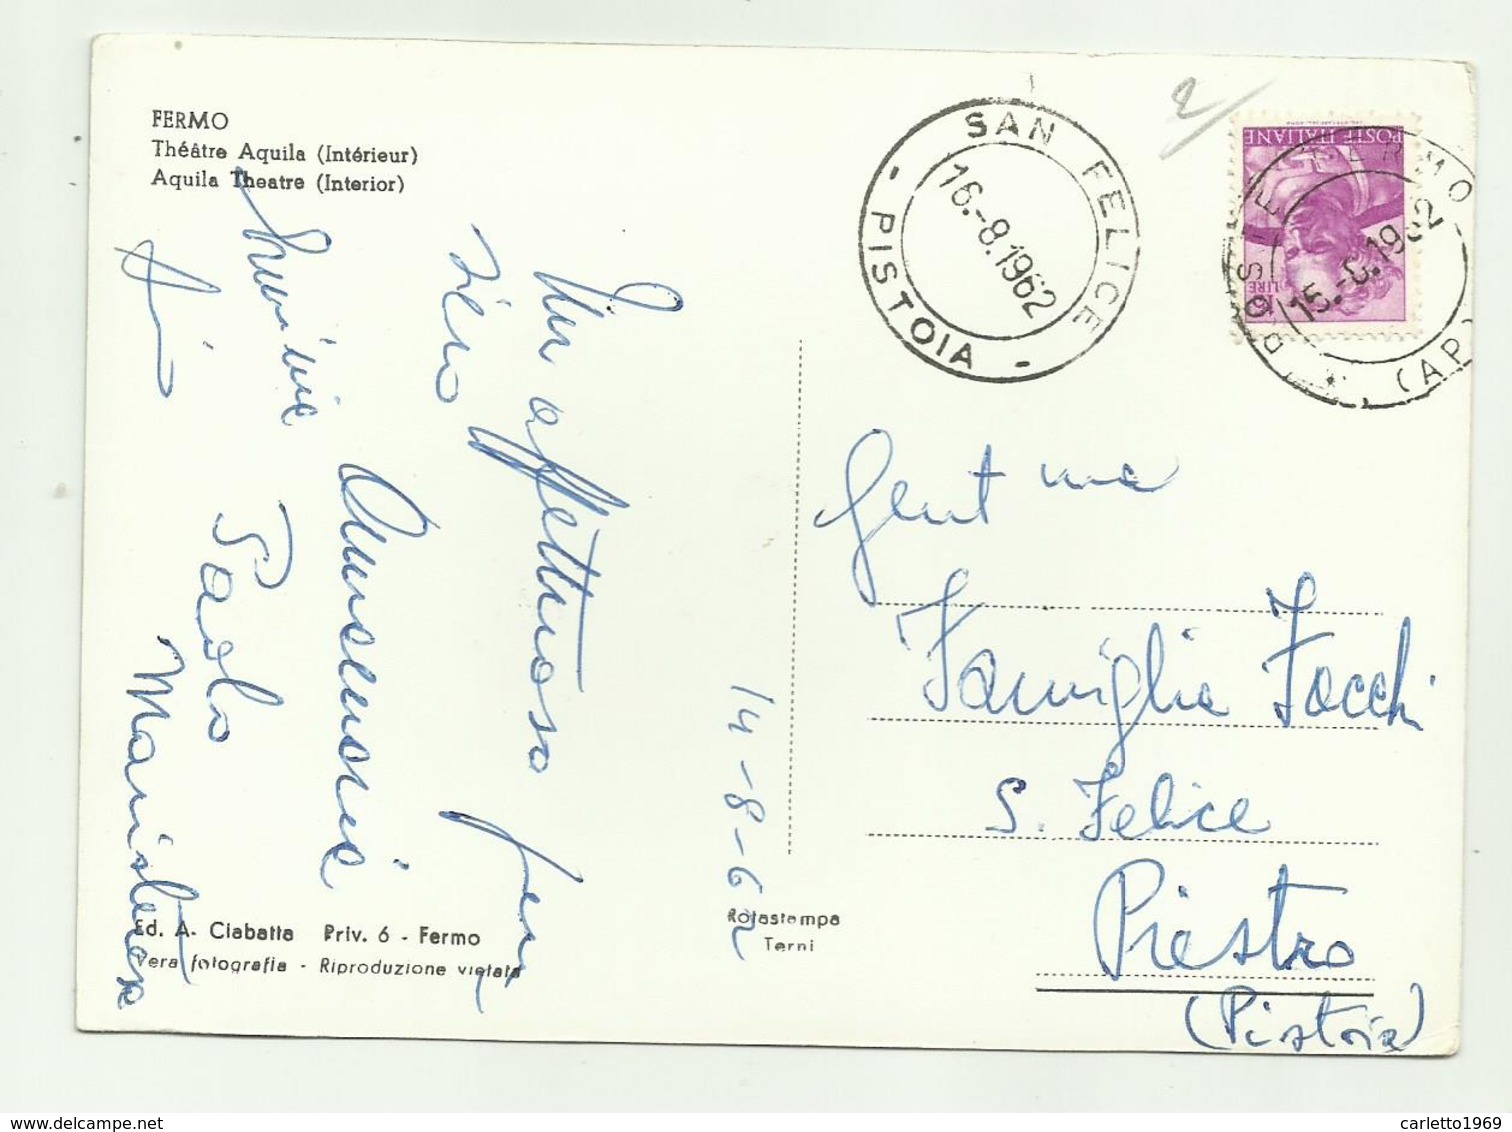 FERMO
Théâtre Aquila (Intérieur)
Aquila Theatre (Interior)
Un affettuoso
Annunciata
Paolo
Maristella
14-8-62
Ed. A. Ciabatta Priv. 6 - Fermo
Vera fotografia - Riproduzione vietata
Rotastampa
Terni
SAN FELICE
- PISTOIA -
16.-8.1962
POSTE ITALIANE
LIRE
POSTE FERMO
(AP)
15.-8.1962
2
Gent ma
Famiglia Focchi
S. Felice
Piestro
(Pistoia)
delcampe.net
carletto1969